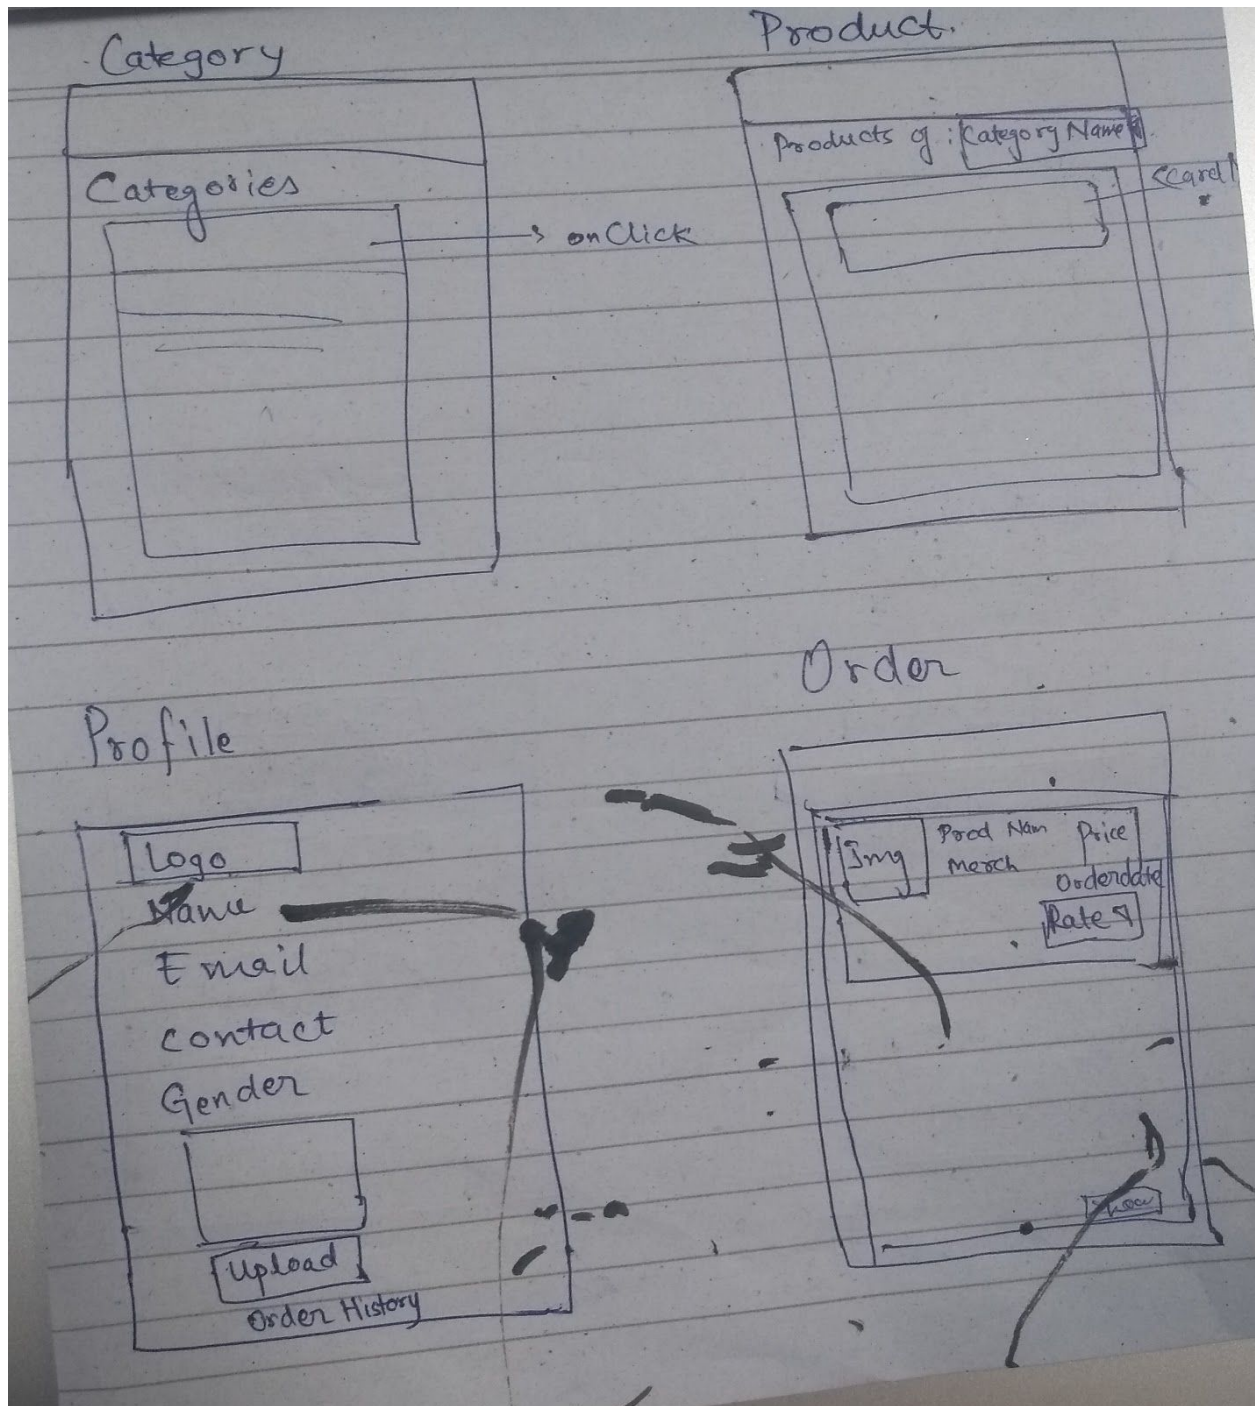 Category
Product.
Categories
onClick
Products of : Category Name
Profile
Logo
Name
Email
Contact
Gender
Upload
Order History
Order
Img
Prod Nam
Price
Merch
Orderdate
Rate